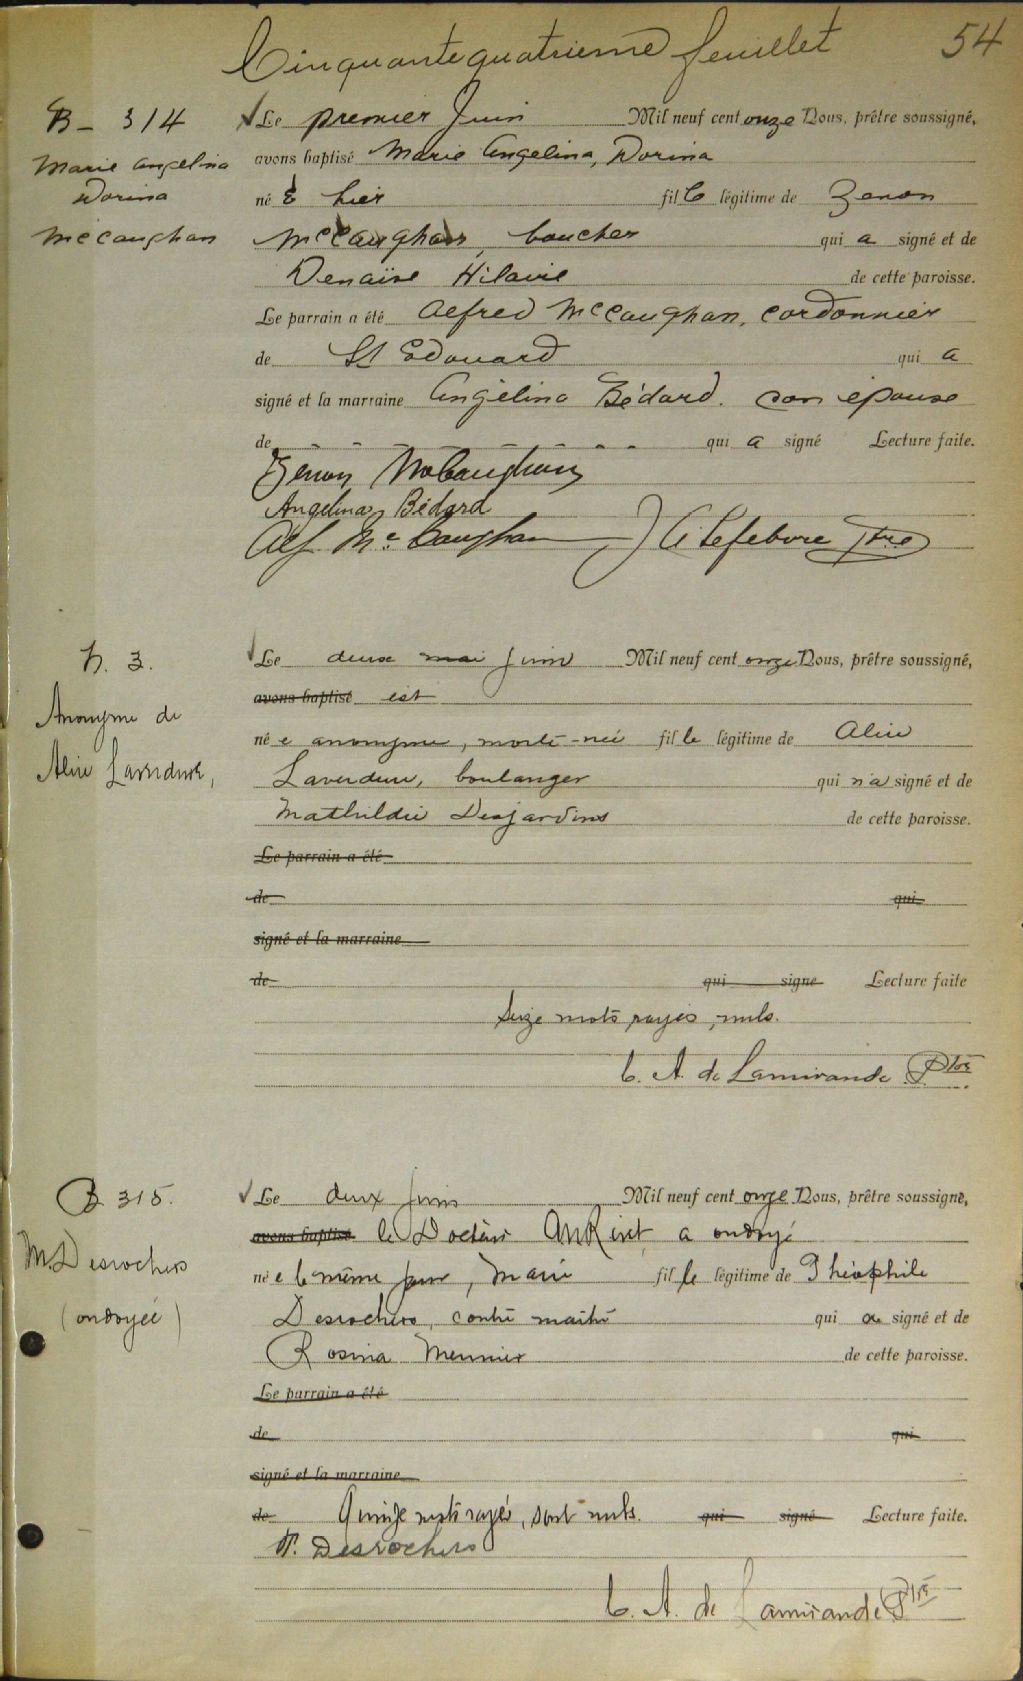 Cinquante quatrieme feuillet 54
B - 314
Marie Angelina
Dorina
McCaughan
Le premier Juin Mil neuf cent onze Nous, prêtre soussigné,
avons baptisé Marie Angelina, Dorina
né e hier fille légitime de Zenon
McCaughan, boucher qui a signé et de
Denaïse Hilaire de cette paroisse.
Le parrain a été Alfred McCaughan, cordonnier
de St Edouard qui a
signé et la marraine Angelina Bédard. son épouse
de - - - - - - - - qui a signé Lecture faite.
Zenon McCaughan
Angelina Bédard
Alf Mc Caughan J A Lefebvre Ptre
3.
Anonyme de
Alire Laverdure,
Le deux mai juin Mil neuf cent onze Nous, prêtre soussigné,
avons baptisé est
né e anonyme, morte-née fille légitime de Alire
Laverdure, boulanger qui n'a signé et de
Mathildie Desjardins de cette paroisse.
Le parrain a été
de qui
signé et la marraine
de qui signé Lecture faite
Seize mots rayés, nuls.
C. A. de Lamirande Ptre
B 315.
M. Desrochers
(ondoyée)
Le deux juin Mil neuf cent onze Nous, prêtre soussigné,
avons baptisé le Docteur Rivet a ondoyé
né e le même jour, Marie fille légitime de Théophile
Desrochers, contre maître qui a signé et de
Rosina Meunier de cette paroisse.
Le parrain a été
de qui
signé et la marraine
de Quinze mots rayés, sont nuls. qui signé Lecture faite.
T. Desrochers
C. A. de Lamirande Ptre